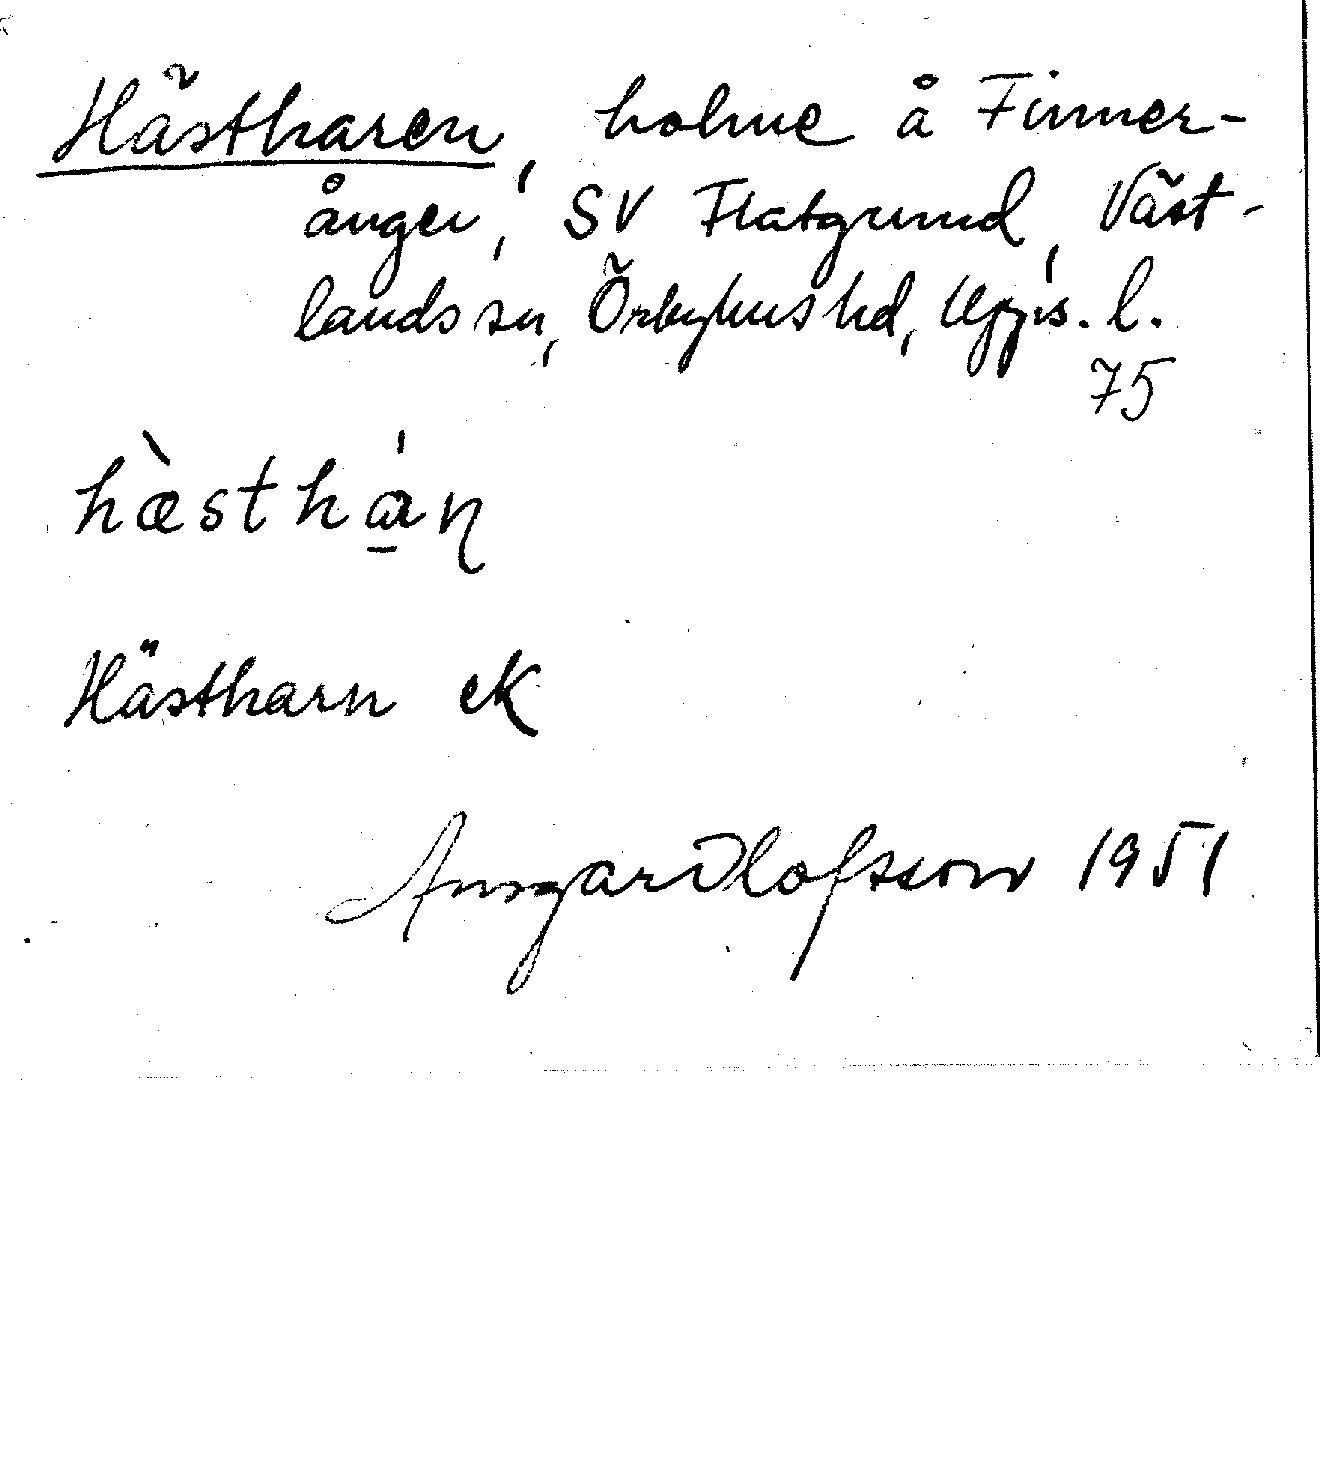 Hästharen, holme å Finner-
ånger, SV Flatgrund, Väst-
lands sn, Örbyhus hd, Upps. l.
75
hàsthạ̄́ṇ
Hästharn ek
Ansgar Olofsson 1951